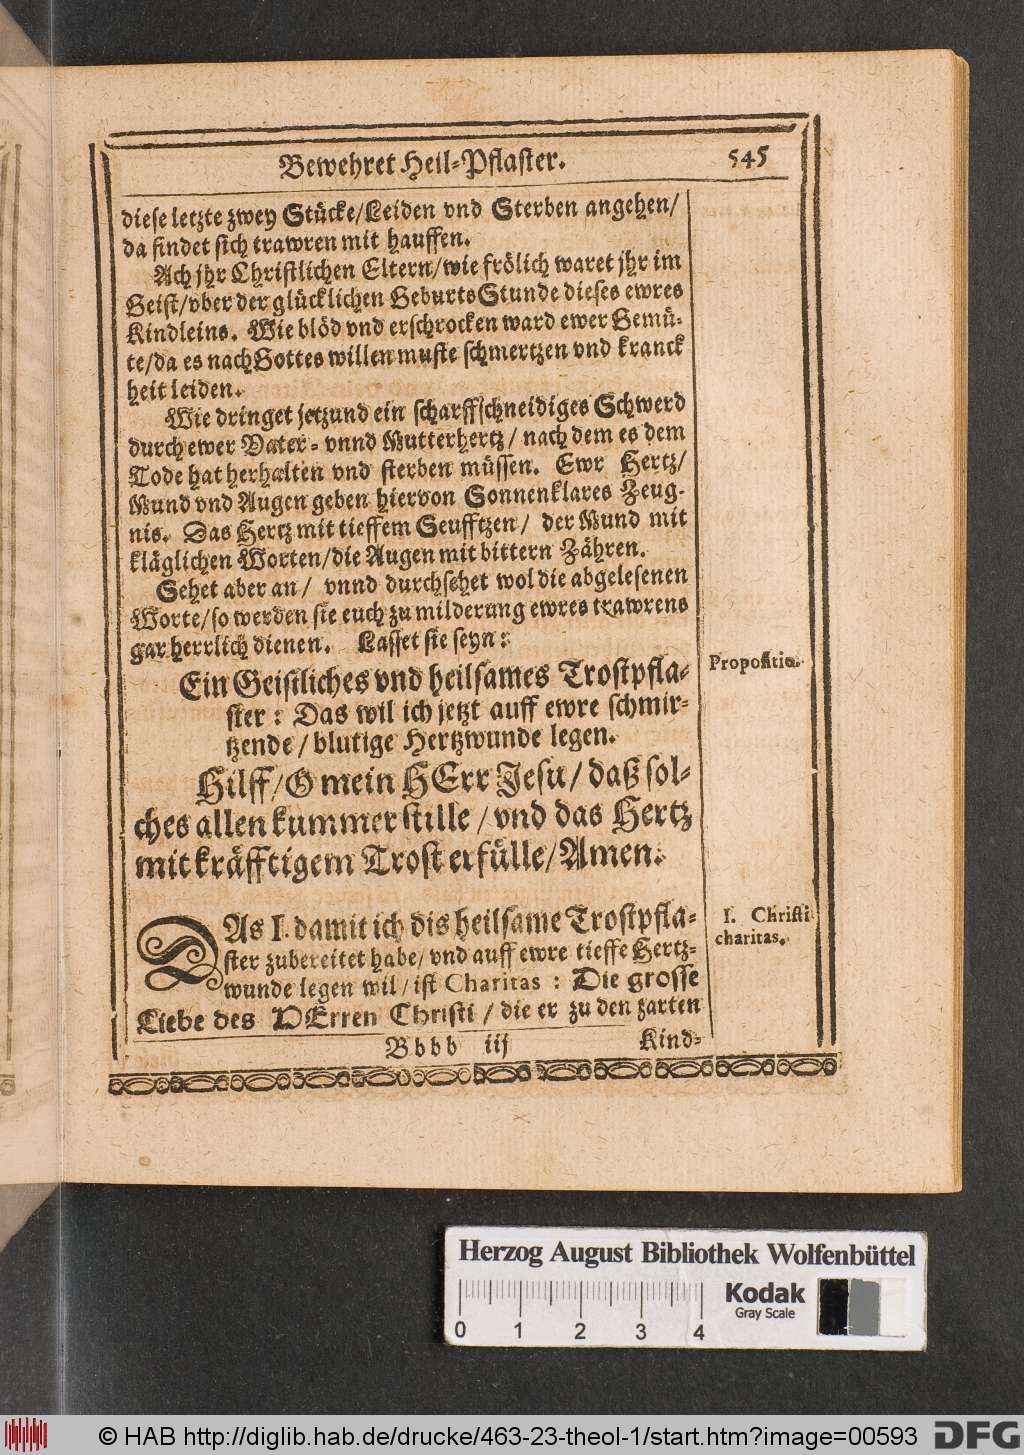 Bewehret Heil-Pflaster. 545
diese letzte zwey Stücke/Leiden vnd Sterben angehen/
da findet sich trawren mit hauffen.
Ach jhr Christlichen Eltern/wie frölich waret jhr im
Geist/vber der glücklichen GeburtsStunde dieses ewres
Kindleins. Wie blöd vnd erschrocken ward ewer Gemü-
te/da es nach Gottes willen muste schmertzen vnd kranck
heit leiden.
Wie dringet jetzund ein scharffschneidiges Schwerd
durch ewer Vater- vnnd Mutterhertz/ nach dem es dem
Tode hat herhalten vnd sterben müssen. Ewr Hertz/
Mund vnd Augen geben hiervon Sonnenklares Zeug-
nis. Das Hertz mit tieffem Seufftzen/ der Mund mit
kläglichen Worten/die Augen mit bittern Zähren.
Sehet aber an/ vnnd durchsehet wol die abgelesenen
Worte/so werden sie euch zu milderung ewres trawrens
gar herrlich dienen. Lasset sie seyn:
Ein Geistliches vnd heilsames Trostpfla-
ster: Das wil ich jetzt auff ewre schmir-
tzende/blutige Hertzwunde legen.
Propositio.
Hilff/O mein HErr Jesu/daß sol-
ches allen kummer stille/vnd das Hertz
mit kräfftigem Trost erfülle/Amen.
DAs I. damit ich dis heilsame Trostpfla-
ster zubereitet habe/vnd auff ewre tieffe Hertz-
wunde legen wil/ist Charitas: Die grosse
Liebe des HErren Christi/die er zu den zarten
I. Christi
charitas.
Bbbb iij Kind-
Herzog August Bibliothek Wolfenbüttel
Kodak
Gray Scale
0 1 2 3 4
© HAB http://diglib.hab.de/drucke/463-23-theol-1/start.htm?image=00593
DFG